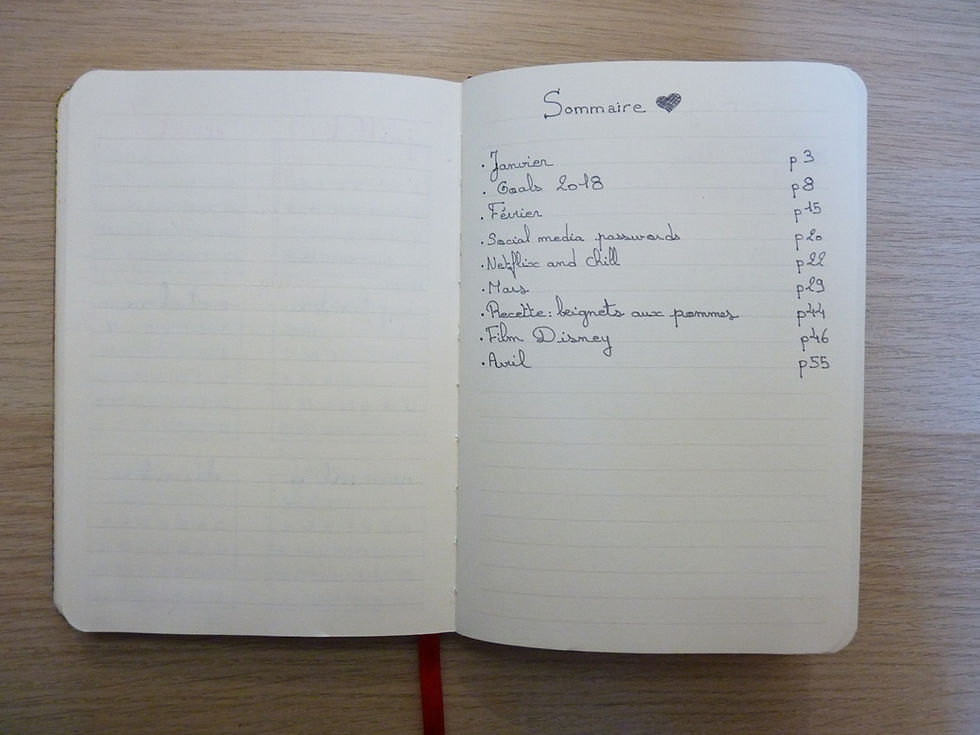 Sommaire ♥
• Janvier p 3
• Goals 2018 p 8
• Février p 15
• Social media passwords p 20
• Netflix and chill p 22
• Mars p 29
• Recette : beignets aux pommes p 44
• Film Disney p 46
• Avril p 55